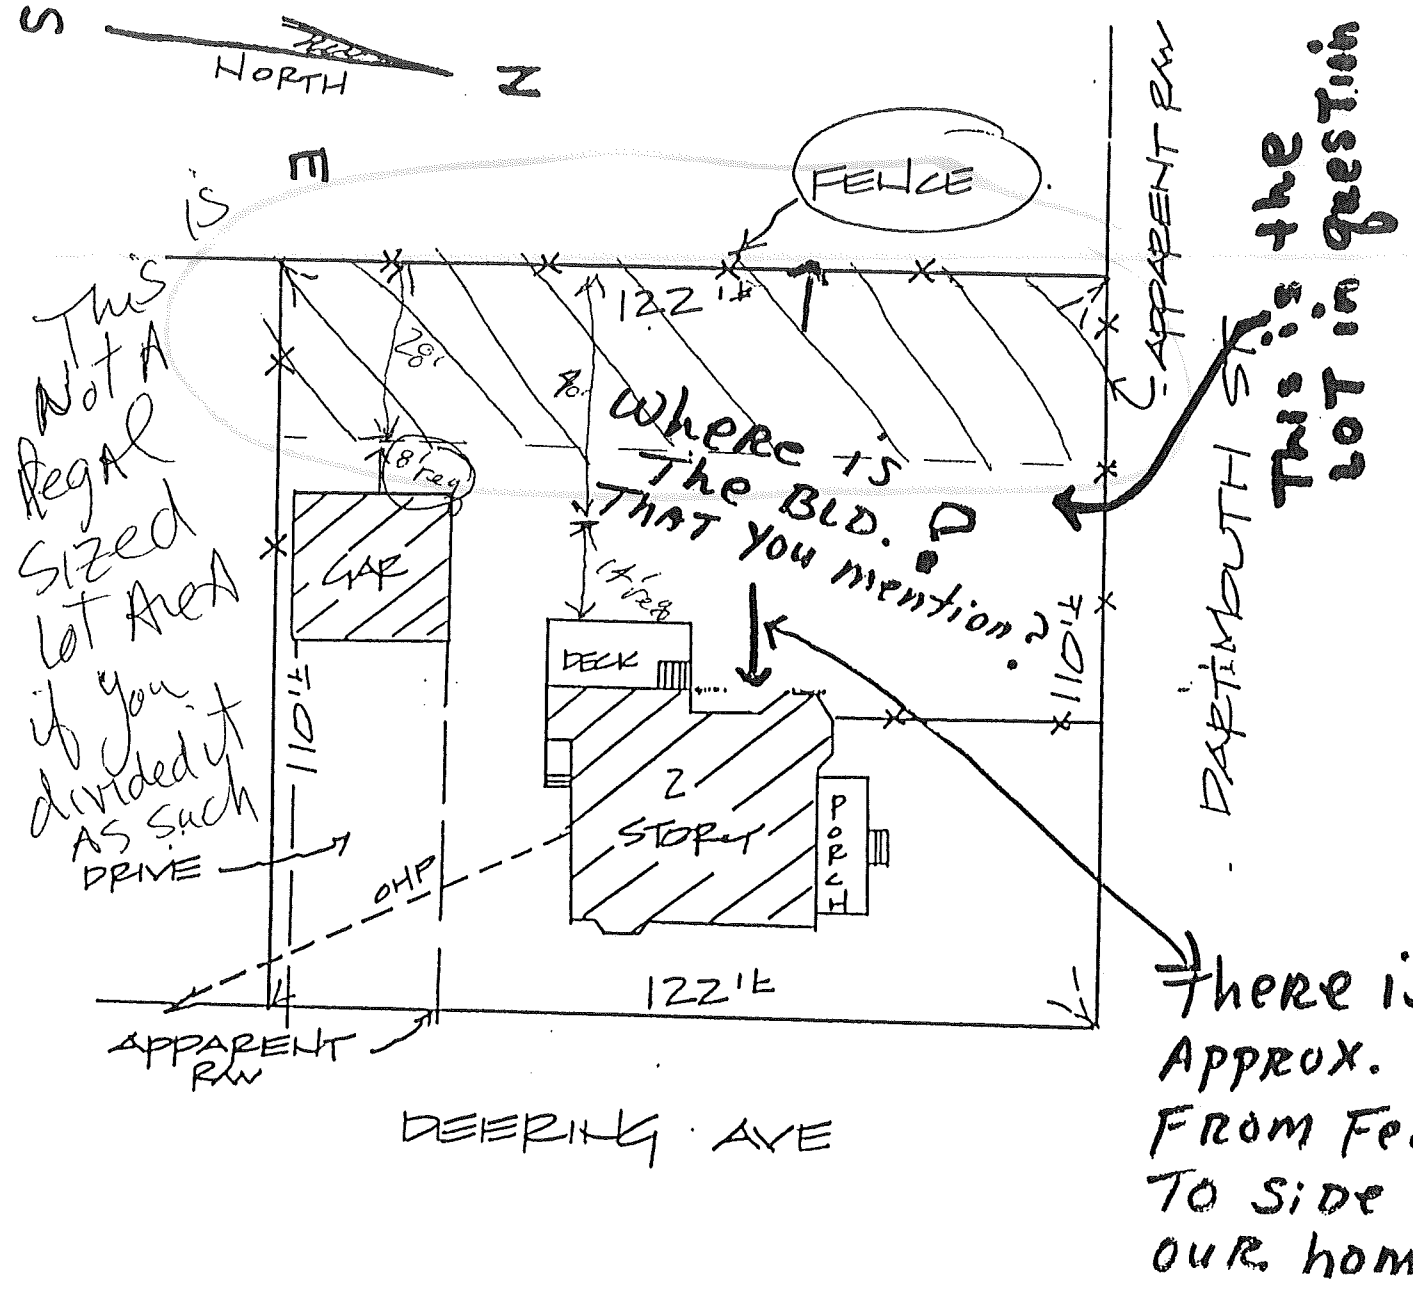 S
NORTH
N
E
FENCE
APPARENT R/W
This is the
LOT in quesTion
is
This
Not A
Regal
Sized
LoT AreA
if you
divided it
AS Such
122'±
28'
8'
req
Where is
The BLD. ?
THAT you mention?
14'
req
GAR
DECK
110'±
110'±
DARTMOUTH ST.
2
STORY
PORCH
DRIVE
OHP
122'±
APPARENT
R/W
DEERING AVE
There is
APPROX.
FROM Fe
TO SiDe
OUR hom